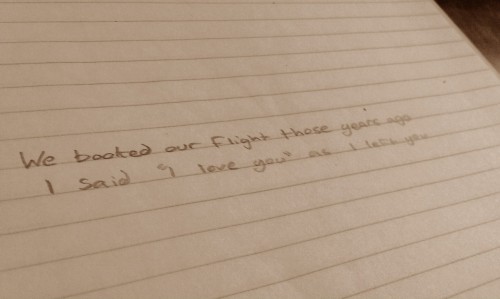 We booked our flight those years ago
I said "I love you" as I left you